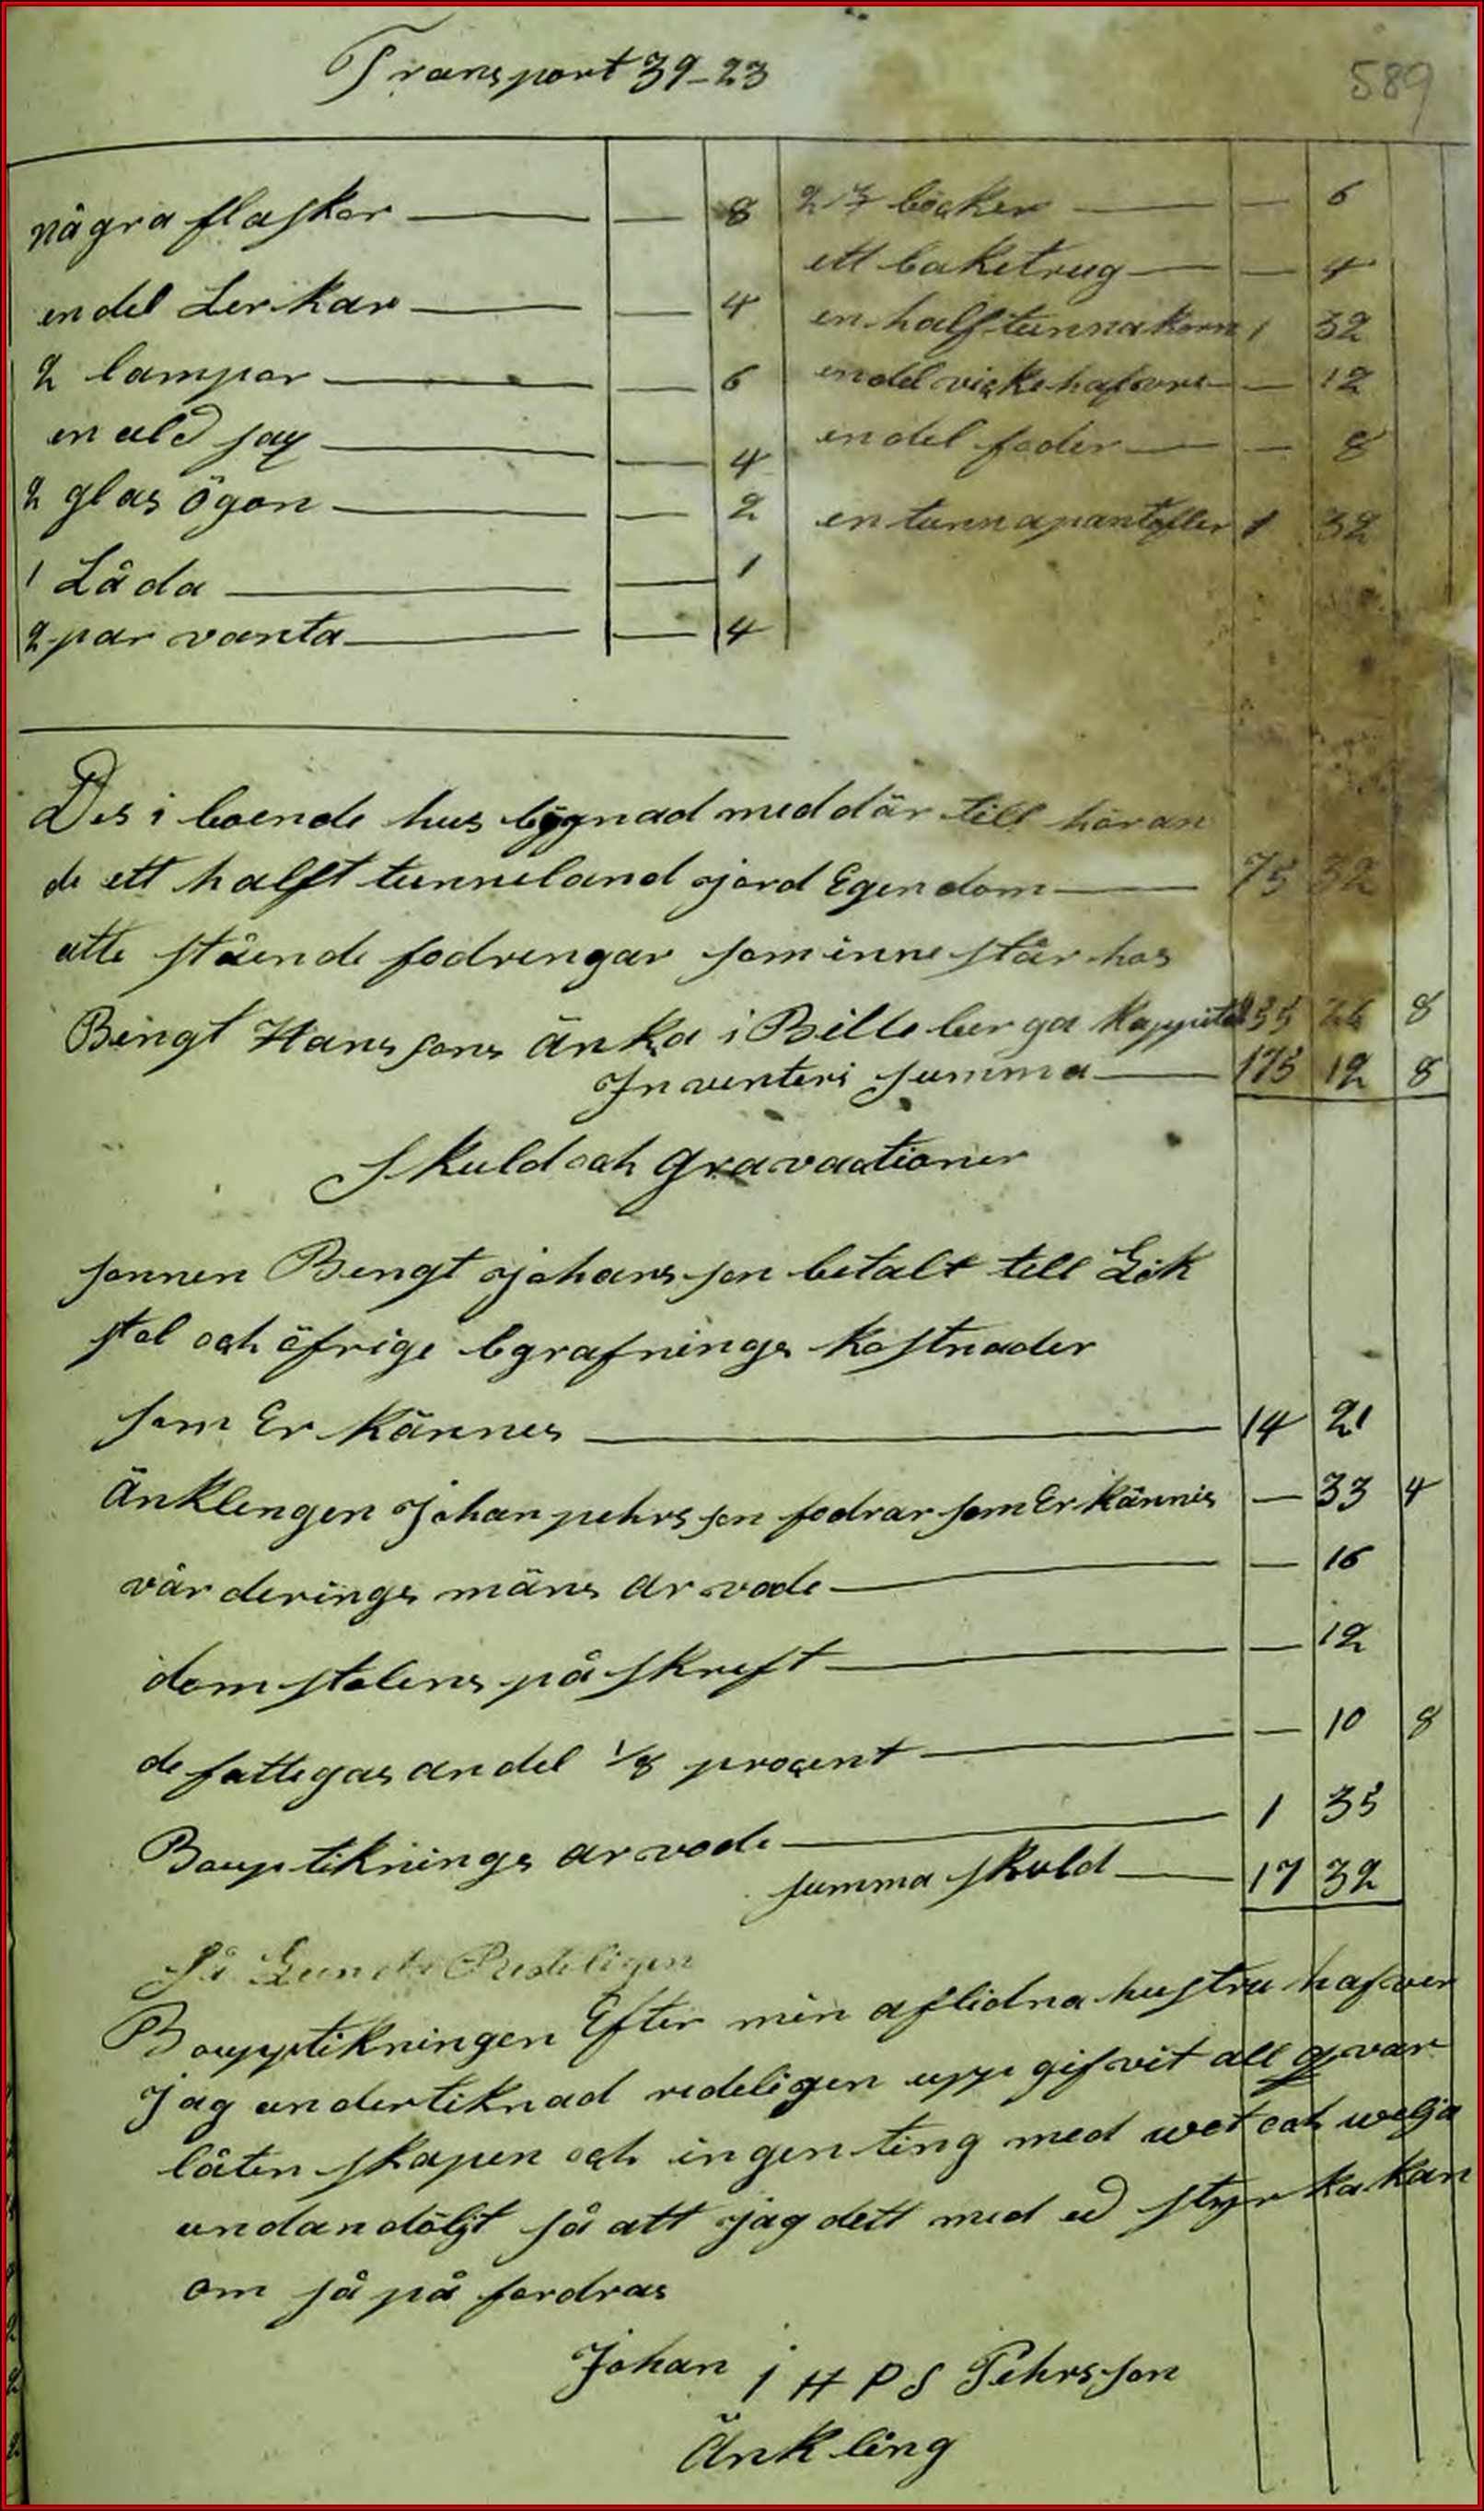 Transport 39-23
589
några flaskor — — 8
en del Lerkar — — 4
2 lampor — — 6
en ald sag — — 4
2 glas ögon — — 2
1 Låda — — 1
2 par vanta — — 4
böcker — — 6
ett baketrug — — 4
en half tunna korn 1 32
en del vickehafvre — — 12
en del foder — — 8
en tunna pantofler 1 32
Des i boende hus bygnad med där till höran
de ett halft tunneland jord Egendom — 75 32
utte stående fodringar som inne står hos
Bengt Hanssons änka i Billeberga Kappital 55 26 8
Inventeri summa — 173 12 8
Skuld och gravaationer
sonnen Bengt Johansson betalt till Lik
stol och öfrige bgrafnings kostnader
som Er Kännes — 14 21
Änklengen Johan pehrsson fodrar som Er Kännes — 33 4
vär derings mäns arvode — — 16
domstolens på skreft — — 12
de fattegas andel 1/8 procent — — 10 8
Bouptiknings arvode — 1 35
summa skuld — 17 32
Boupptikningen Efter min aflidna hustru hafver
Jag undertiknad redeligen upp gifvit all qvar
låten skapen och ingen ting med wet och welja
undandöljt så att jag dett med ed styrka kan
om så på fordras
Johan J H P S Pehrsson
Änkling